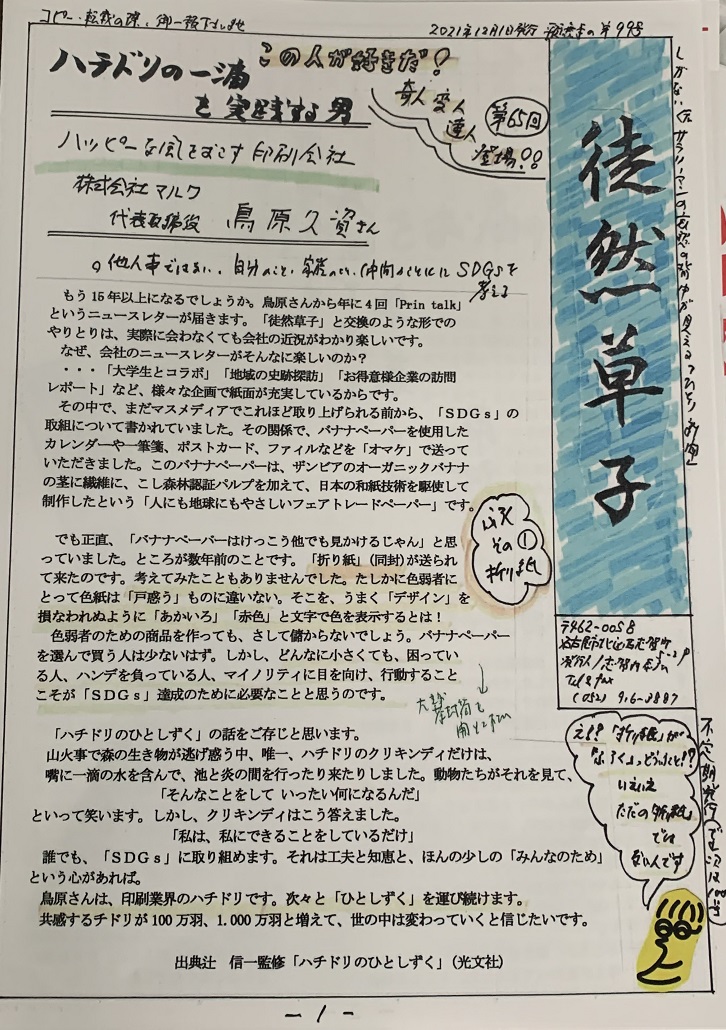 コピー・転載の際、御一報下しませ
2021年12月1日発行 通算その第99号
この人が好きだ!
ハチドリの一滴
を実践する男
奇人変人
達人
登場!!
第65回
ハッピーな風をおこす印刷会社
株式会社マルワ
代表取締役 鳥原久資さん
他人事ではない、自分のこと、家族のこと、仲間のことにSDGsを
考える
徒然草子
もう15年以上になるでしょうか。鳥原さんから年に4回「Prin talk」
というニュースレターが届きます。「徒然草子」と交換のような形での
やりとりは、実際に会わなくても会社の近況がわかり楽しいです。
なぜ、会社のニュースレターがそんなに楽しいのか?
・・・「大学生とコラボ」「地域の史跡探訪」「お得意様企業の訪問
レポート」など、様々な企画で紙面が充実しているからです。
その中で、まだマスメディアでこれほど取り上げられる前から、「SDGs」の
取組について書かれていました。その関係で、バナナペーパーを使用した
カレンダーや一筆箋、ポストカード、ファイルなどを「オマケ」で送って
いただきました。このバナナペーパーは、ザンビアのオーガニックバナナ
の茎に繊維に、こし森林認証パルプを加えて、日本の和紙技術を駆使して
制作したという「人にも地球にもやさしいフェアトレードペーパー」です。
ふろく
その①
折り紙
でも正直、「バナナペーパーはけっこう他でも見かけるじゃん」と思
っていました。ところが数年前のことです。「折り紙」(同封)が送られ
て来たのです。考えてみたこともありませんでした。たしかに色弱者に
とって色紙は「戸惑う」ものに違いない。そこを、うまく「デザイン」を
損なわれぬように「あかいろ」「赤色」と文字で色を表示するとは!
色弱者のための商品を作っても、さして儲からないでしょう。バナナペーパー
を選んで買う人は少ないはず。しかし、どんなに小さくても、困ってい
る人、ハンデを負っている人、マイノリティに目を向け、行動すること
こそが「SDGs」達成のために必要なことと思うのです。
「ハチドリのひとしずく」の話をご存じと思います。
山火事で森の生き物が逃げ惑う中、唯一、ハチドリのクリキンディだけは、
嘴に一滴の水を含んで、池と炎の間を行ったり来たりしました。動物たちがそれを見て、
「そんなことをして いったい何になるんだ」
といって笑います。しかし、クリキンディはこう答えました。
「私は、私にできることをしているだけ」
誰でも、「SDGs」に取り組めます。それは工夫と知恵と、ほんの少しの「みんなのため」
という心があれば。
鳥原さんは、印刷業界のハチドリです。次々と「ひとしずく」を運び続けます。
共感するチドリが100万羽、1.000万羽と増えて、世の中は変わっていくと信じたいです。
出典辻 信一監修「ハチドリのひとしずく」(光文社)
〒462-0058
Tel & fax
(052) 916-3887
え!?「折り紙」が
「ふろく」ってどういうこと!?
いえいえ
ただの折り紙
では
ないんです
-1-